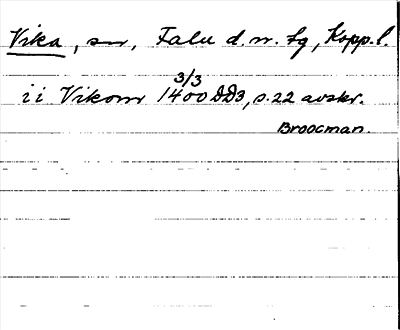 Vika, sn, Falu d.n. tg, Kopp.l.
3/3
i i Vikom 1400 DD3, s.22 avskr.
Broocman.